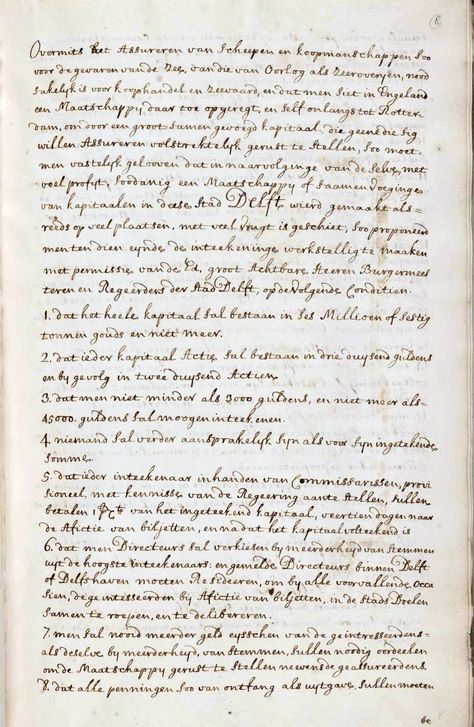 8
Overmits het Assureren van Scheepen en koopmanschappen Soo
voor de gevaren van de Zee, van die van Oorlog als Zeeroveryen, nood
sakelijk is voor koophandel en Zeevaard, en dat men Siet in Engeland
een Maatschappy daar toe opgeregt, en Self onlangs tot Rotter-
dam, om door een groot Samen gevoegd kapitaal, die geene die Sig
willen Assureren volstrektelijk gerust te Stellen, Soo moet
men vastelijk gelooven dat in naarvolginge van de Selve, met
veel profijt, Soodanig een Maatschappy of Saamenvoeginge
van kapitaalen in deese Stad Delft, wierd gemaakt als
reeds op veel plaatsen, met veel vrugt is geschiet, Soo proponeerd
men ten dien eynde de inteekeninge werkstellig te maaken
met permissie van de Ed. groot Achtbare Heeren Burgermees
teren en Regeerders der Stad Delft, op de volgende Conditien.
1. dat het heele kapitaal Sal bestaan in Ses Millioen of Sestig
tonnen gouds en niet meer.
2. dat ieder kapitaal Actie Sal bestaan in drie duysend guldens
en by gevolg in twee duysend Actien
3. dat men niet minder als 3000 guldens, en niet meer als
45000 guldens Sal moogen inteekenen.
4. niemand Sal verder aansprakelijk Sijn als voor Sijn ingetekende
Somme.
5. dat ieder inteekenaar in handen van Commissarissen, provi
sioneel, met kennisse van de Regeering aan te Stellen, Sullen
betalen 1 PCto van het ingeteekend kapitaal, veertien dagen naar
de Afictie van biljetten, en nadat het kapitaal volteekend is
6. dat men Directeurs Sal verkiesen by meerderheyd van Stemmen
uyt de hoogste inteekenaars: en gemelde Directeurs binnen Delft
of Delfshaven moeten Resideeren, om by alle voorvallende Occa
sien, de geintesseerden by Afictie van biljetten, in de Stads Doelen
Samen te roepen, en te delibereren.
7. men Sal nooid meerder geld eysschen van de geintresseerdens
als deselve by meerderheyd, van Stemmen, Sullen nordig oordeelen
om de Maatschappy gerust te Stellen nevens de geassureerdens.
8. dat alle penningen Soo van ontfang als uytgave Sullen moeten
be